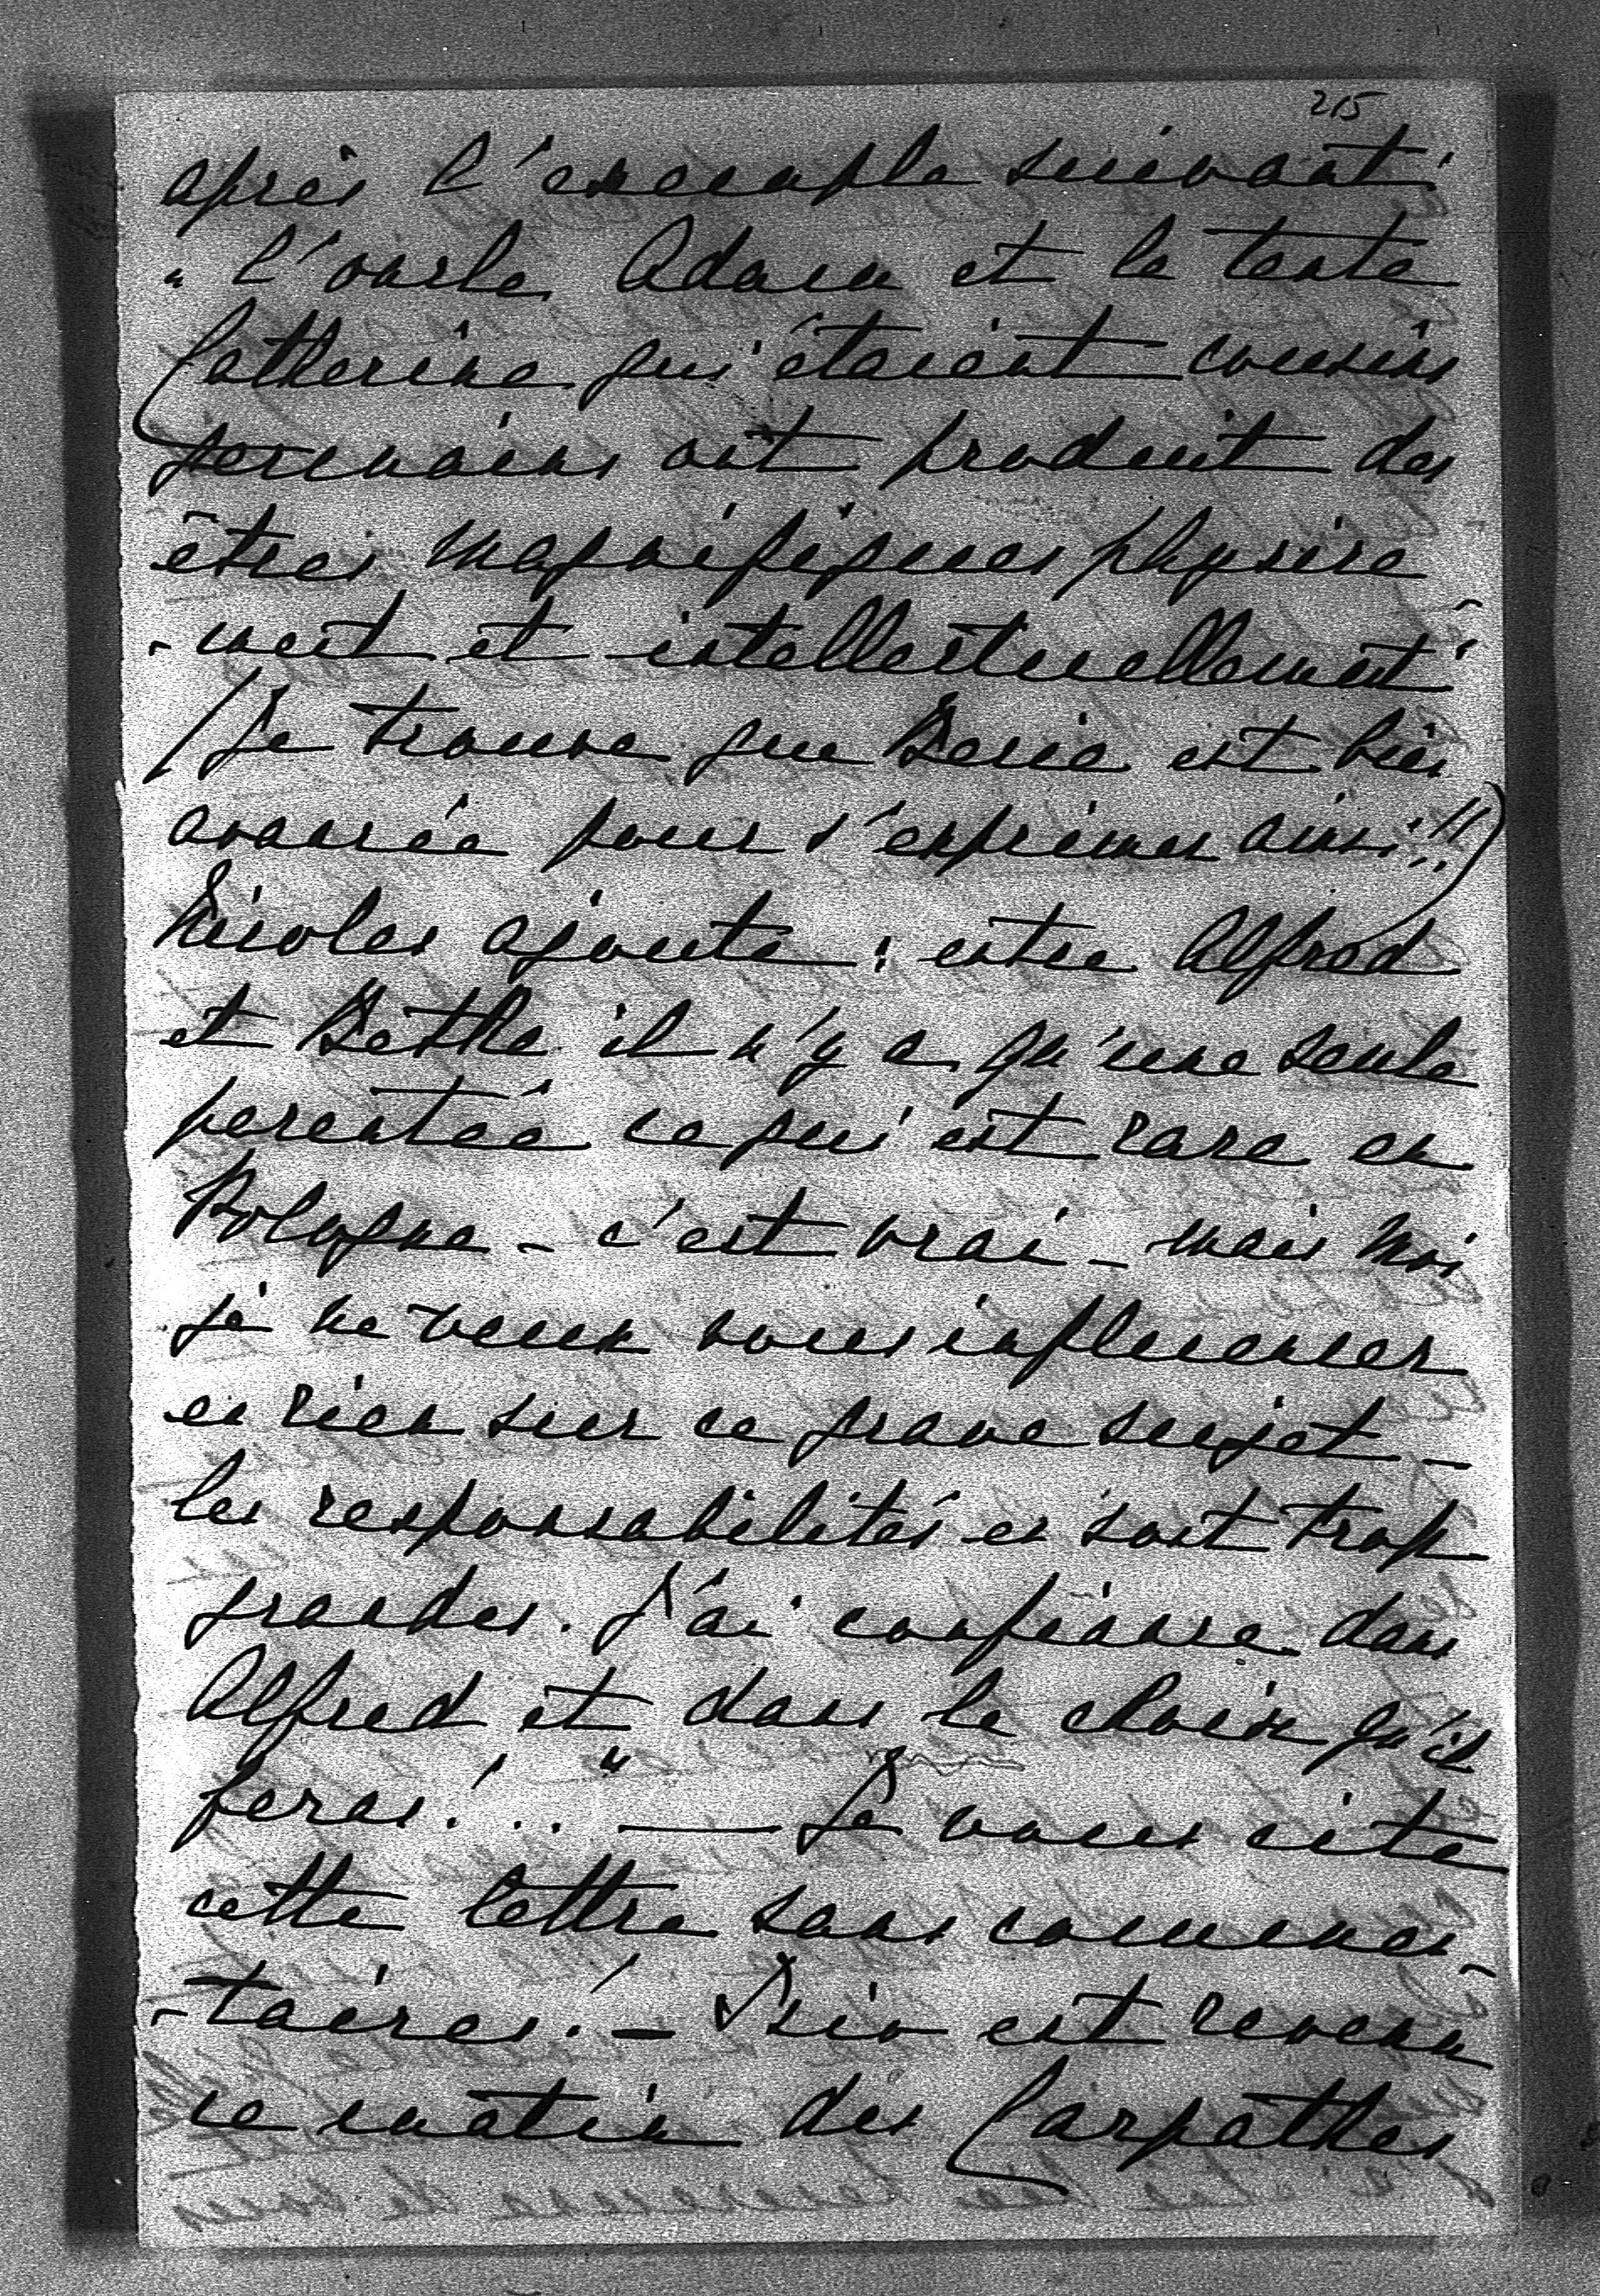 215
après l'exemple suivant :
" l'oncle Adam et la tante
Catherine qui étaient cousins
germains ont produit des
êtres magnifiques physique
- ment et intellectuellement "
( Je trouve que est bien
avancée pour s'exprimer ainsi !! )
Nicolas ajoute : entre Alfred
et Betka il n'y a qu'une seule
parentée ce qui est rare en
Pologne - c'est vrai - mais moi
je ne veux vous influencer
en rien sur ce grave sujet -
les responsabilités en sont trop
grandes. J'ai confiance dans
Alfred et dans le choix qu'il
feras ! .. " — Je vous cite
cette lettre sans commen-
- taires ! - est revenu
ce matin des Carpathes